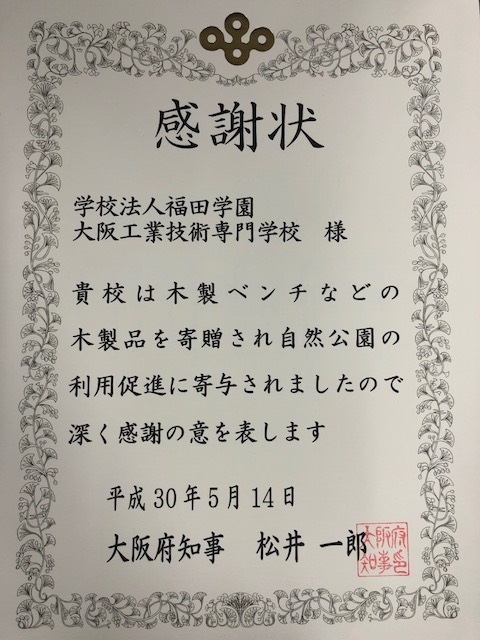 感謝状
学校法人福田学園
大阪工業技術専門学校 様
貴校は木製ベンチなどの
木製品を寄贈され自然公園の
利用促進に寄与されましたので
深く感謝の意を表します
平成30年5月14日
大阪府知事 松井 一郎
大阪府
知事印